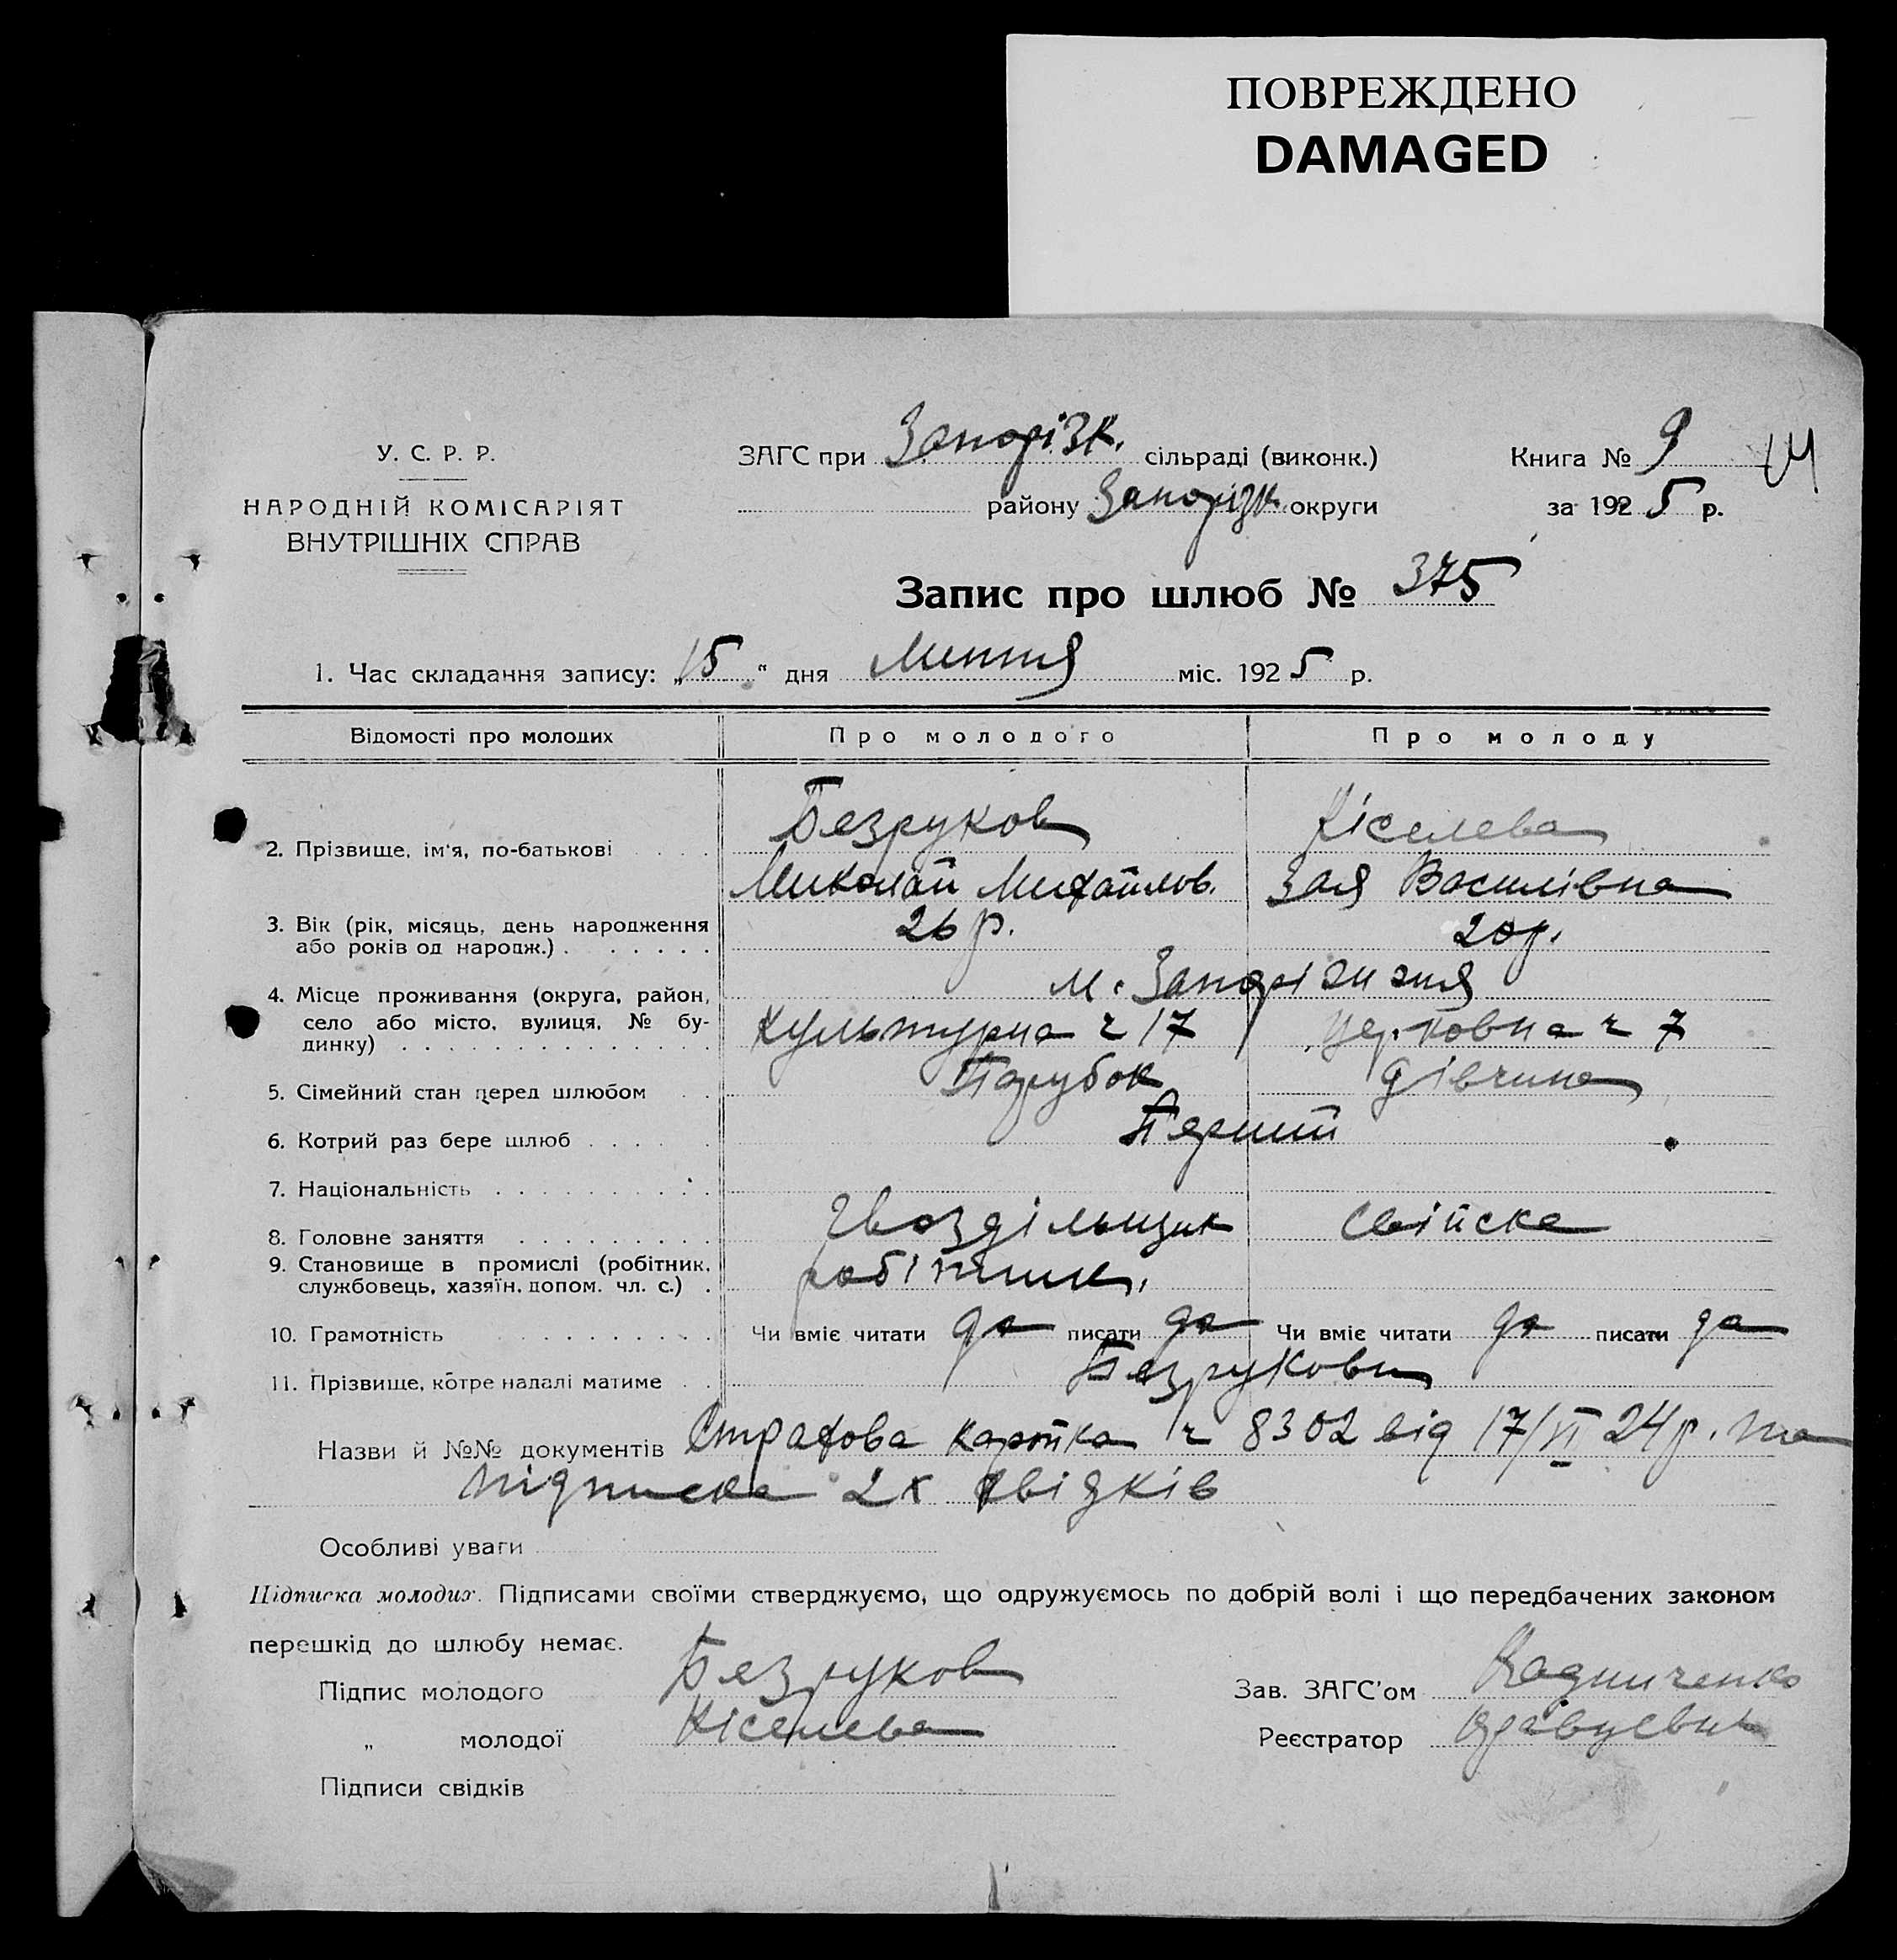 ПОВРЕЖДЕНО
DAMAGED
У. С. Р. Р.
НАРОДНІЙ КОМІСАРІЯТ
ВНУТРІШНІХ СПРАВ
ЗАГС при Запорізк. сільраді (виконк.)
району Запорізк. округи
Книга № 9
за 1925 р.
Запис про шлюб № 375
1. Час складання запису: „15“ дня Липня міс. 1925 р.
Відомості про молодих
Про молодого
Про молоду
2. Прізвище, ім'я, по-батькові
Безруков
Кіселева
Миколай Михайлов.
Зоя Василівна
3. Вік (рік, місяць, день народження
або років од народж.)
26 р.
20 р.
4. Місце проживання (округа, район,
село або місто, вулиця, № бу-
динку)
м. Запоріжжя
Культурна ч 17
Церковна ч 7
5. Сімейний стан перед шлюбом
Парубок
дівчина
6. Котрий раз бере шлюб
Перший
7. Національність
8. Головне заняття
Гвоздільщик
свійске
9. Становище в промислі (робітник,
службовець, хазяїн, допом. чл. с.)
робітник.
10. Грамотність
Чи вміє читати да писати да
Чи вміє читати да писати да
11. Прізвище, котре надалі матиме
Безрукови
Назви й №№ документів Страхова картка ч 8302 від 17/VI 24 р. та
підписка 2х свідків
Особливі уваги
Підписка молодих. Підписами своїми стверджуємо, що одружуємось по добрій волі і що передбачених законом
перешкід до шлюбу немає.
Підпис молодого Безруков
Зав. ЗАГС'ом
„ молодої Кіселева
Реєстратор
Підписи свідків